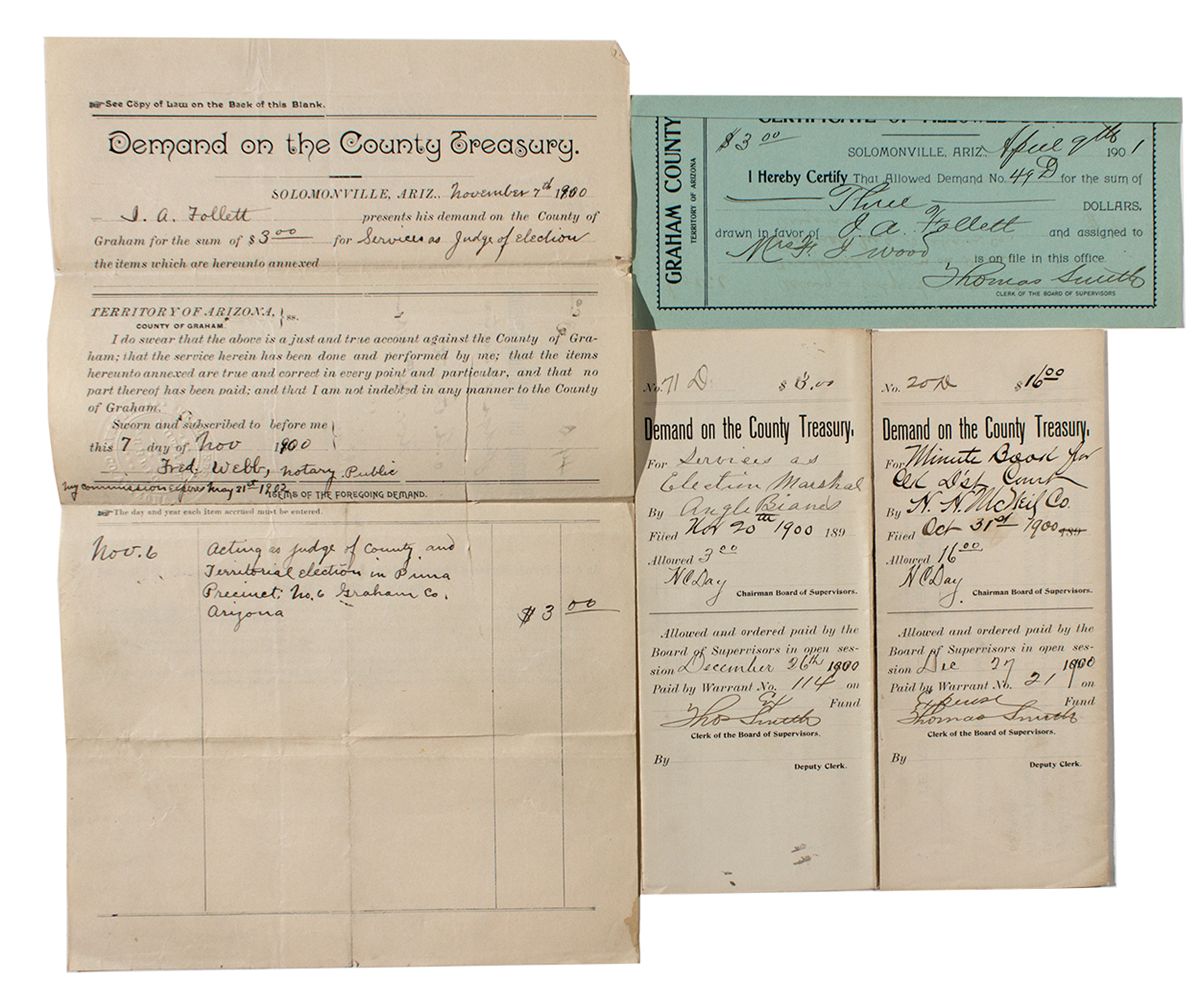 See Copy of Law on the Back of this Blank.
Demand on the County Treasury.
SOLOMONVILLE, ARIZ., November 7th 1900
I. A. Follett presents his demand on the County of
Graham for the sum of $3 00 for Services as Judge of election
the items which are hereunto annexed
TERRITORY OF ARIZONA, } ss.
COUNTY OF GRAHAM.
I do swear that the above is a just and true account against the County of Gra-
ham; that the service herein has been done and performed by me; that the items
hereunto annexed are true and correct in every point and particular, and that no
part thereof has been paid; and that I am not indebted in any manner to the County
of Graham.
Sworn and subscribed to before me
this 7 day of Nov 1900
Fred. Webb, Notary Public
My commission expires May 21st 1902
ITEMS OF THE FOREGOING DEMAND.
The day and year each item accrued must be entered.
Nov. 6 Acting as judge of County and
Territorial election in Pima
Precinct, No. 6 Graham Co.
Arizona $3 00
GRAHAM COUNTY
TERRITORY OF ARIZONA
CERTIFICATE OF ALLOWED
$ 3 00
SOLOMONVILLE, ARIZ., April 9th 1901
I Hereby Certify That Allowed Demand No. 49 D for the sum of
Three DOLLARS,
drawn in favor of I. A. Follett and assigned to
Mrs F. J Wood is on file in this office.
Thomas Smith
CLERK OF THE BOARD OF SUPERVISORS
No. 71 D $ 3.00
Demand on the County Treasury.
For Services as
Election Marshal
By Angle
Filed Nov 20th 1900 189
Allowed 3 00
H C Day
Chairman Board of Supervisors.
Allowed and ordered paid by the
Board of Supervisors in open ses-
sion December 26th 1900
Paid by Warrant No. 114 on
Ex Fund
Thos Smith
Clerk of the Board of Supervisors.
By
Deputy Clerk.
No. 20 D $16 00
Demand on the County Treasury.
For Minute Book for
Clk Dist Court
By H. H. McNeil Co.
Filed Oct 31st 1900 189
Allowed 16 00
H C Day
Chairman Board of Supervisors.
Allowed and ordered paid by the
Board of Supervisors in open ses-
sion Dec 27 1900
Paid by Warrant No. 21 on
Expense Fund
Thomas Smith
Clerk of the Board of Supervisors.
By
Deputy Clerk.